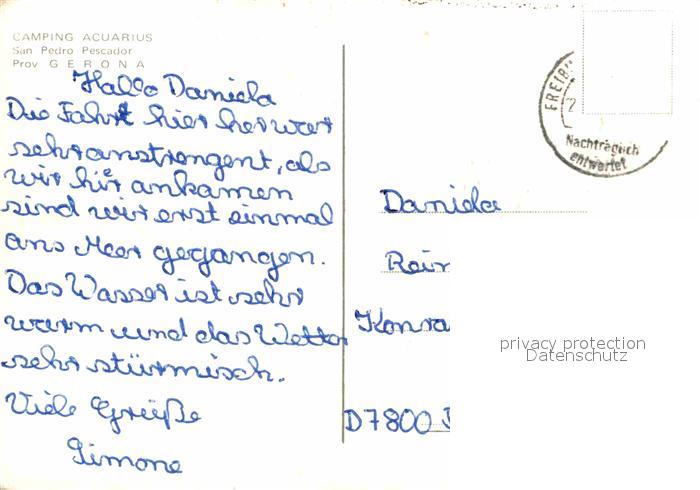 CAMPING ACUARIUS
San Pedro Pescador
Prov GERONA
Hallo Daniela
Die Fahrt hier her war
sehr anstrengent, als
wir hier ankamen
sind wir erst einmal
ans Meer gegangen.
Das Wasser ist sehr
warm und das Wetter
sehr stürmisch.
Viele Grüße
Simone
FREIB
2
Nachträglich
entwertet
Daniela
Rein
Konra
D7800
privacy protection
Datenschutz